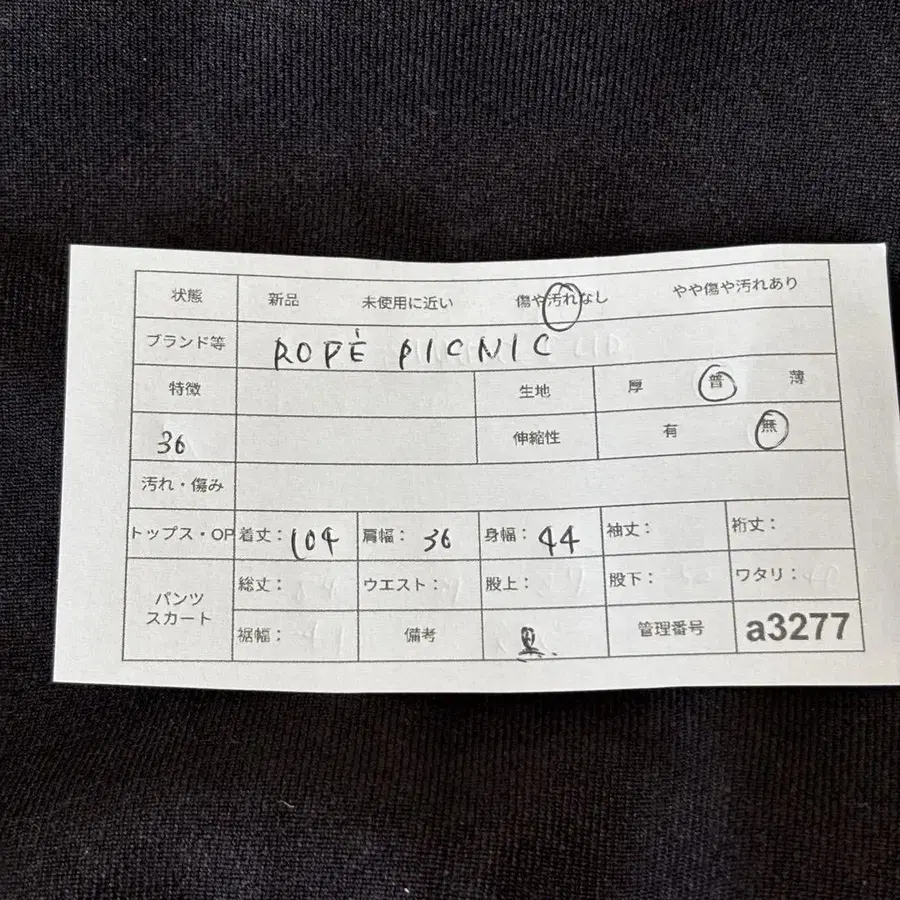 状態 新品 未使用に近い 傷や汚れなし やや傷や汚れあり
ブランド等 ROPÉ PICNIC
特徴 生地 厚 普 薄
36 伸縮性 有 無
汚れ・傷み
トップス・OP 着丈： 104 肩幅： 36 身幅： 44 袖丈： 裄丈：
パンツ 総丈： ウエスト： 股上： 股下： ワタリ：
スカート
裾幅： 備考 管理番号 a3277